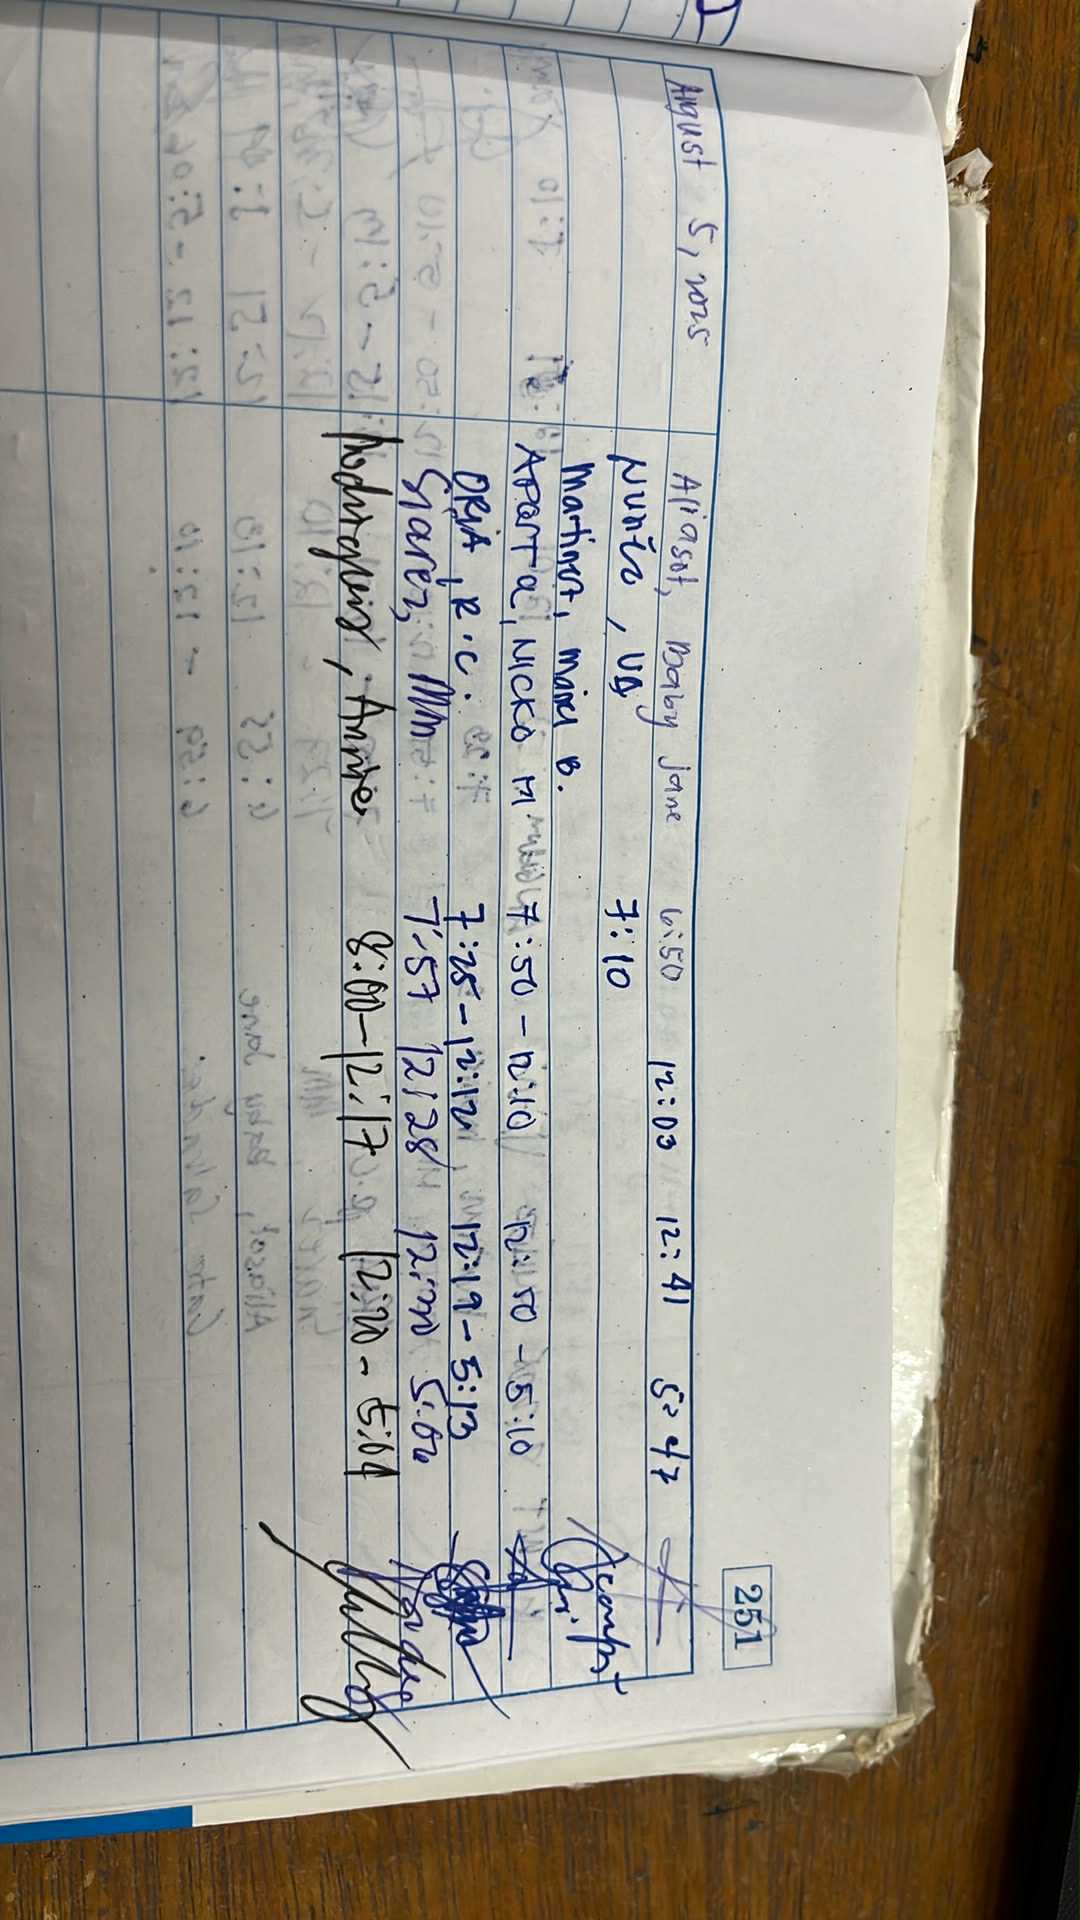 251
August 5, 2025 Aliasot, Baby Jane 6:50 12:03 12:41 5:
Nuñez, VA 7:10
Martinez, B.
Aparta, Nicko M 7:50 - 12:10 12:50 - 5:10
ORIA, R.C. 7:25 - 12:12 12:19 - 5:13
Suarez, MM 7:57 12:28 12:30 5:02
8:00 - 12:17 12:20 - 5:04